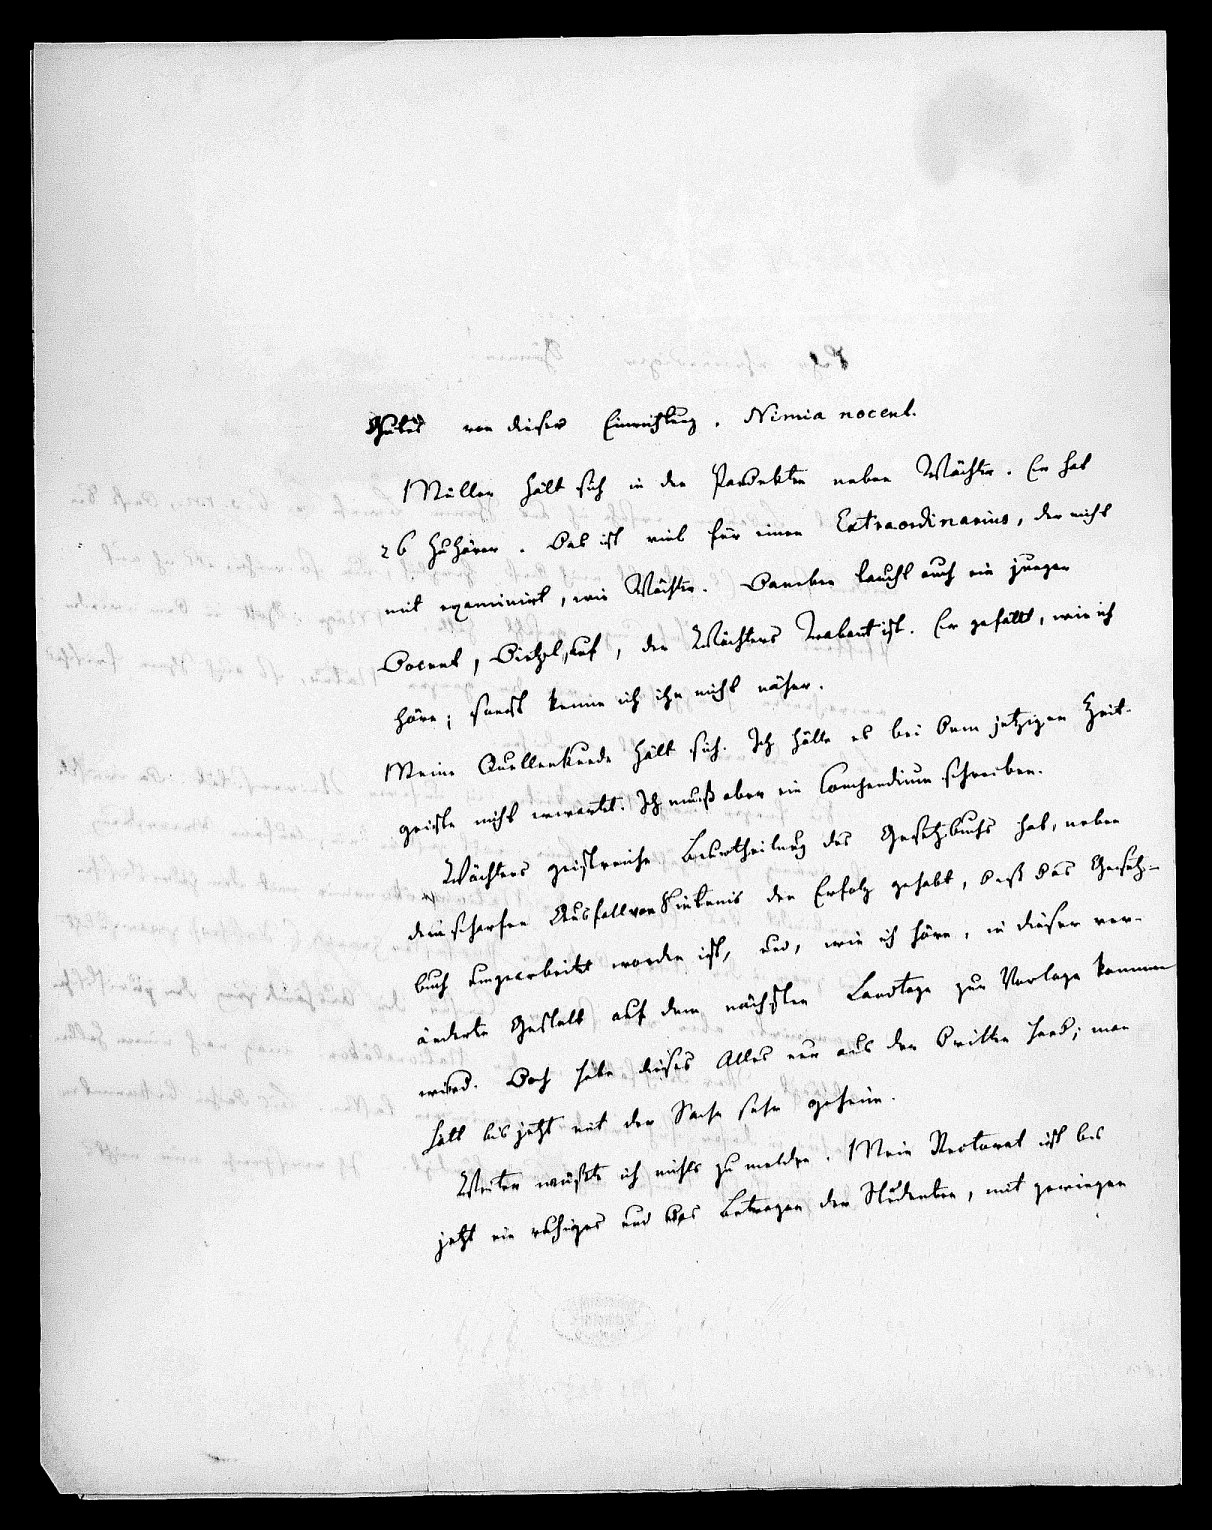 Gutes von dieser Einrichtung. Nimia nocent.
Müller hält sich in den Pandekten neben Wächter. Er hat
26 Zuhörer. Das ist viel für einen Extraordinarius, der nicht
mit examinirt, wie Wächter. Daneben taucht auch ein junger
Docent, auf, der Wächters Trabant ist. Er gefällt, wie ich
höre; sonst kenne ich ihn nicht näher.
Meine Quellenkunde hält sich. Ich hätte es bei dem jetzigen Zeit-
geiste nicht erwartet. Ich muß aber ein Compendium schreiben.
Wächters geistreiche Beurtheilung des Gesetzbuchs hat, neben
dem scharfen Ausfall von den Erfolg gehabt, daß das Gesetz-
buch umgearbeitet worden ist, und, wie ich höre, in dieser ver-
änderten Gestalt auf dem nächsten Landtage zur Vorlage kommen
wird. Doch habe dieses Alles nur aus der dritten Hand; man
hält bis jetzt mit der Sache sehr geheim.
Weiter wüßte ich nichts zu melden. Mein Rectorat ist bis
jetzt ein ruhiges und das Betragen der Studenten, mit geringen